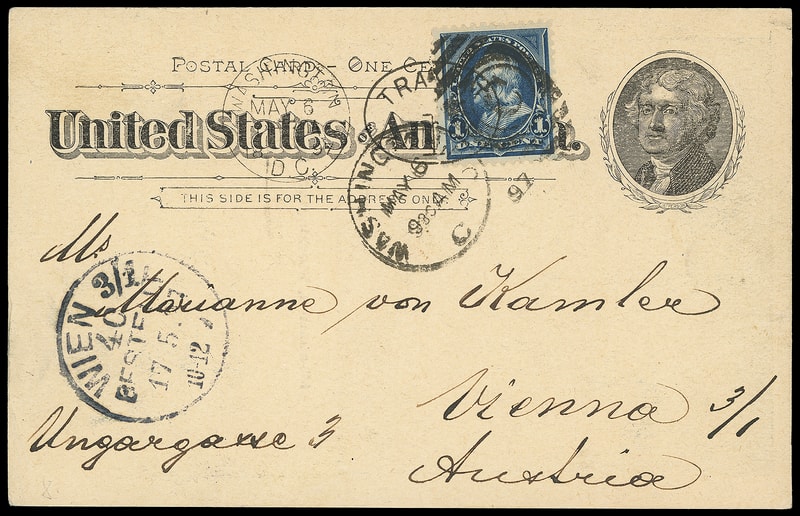 POSTAL CARD – ONE CE
United States of Am a.
THIS SIDE IS FOR THE ADDRESS ONLY
WASHINGTON
MAY 6
D.C.
WASHING
TRA
MAY 6
AM
97
1 1
ONE CENT
Ms.
Marianne von Kamler
Vienna 3/1
Ungargasse 3
Austria
WIEN 3/1
40
BESTE
17 5
10-12